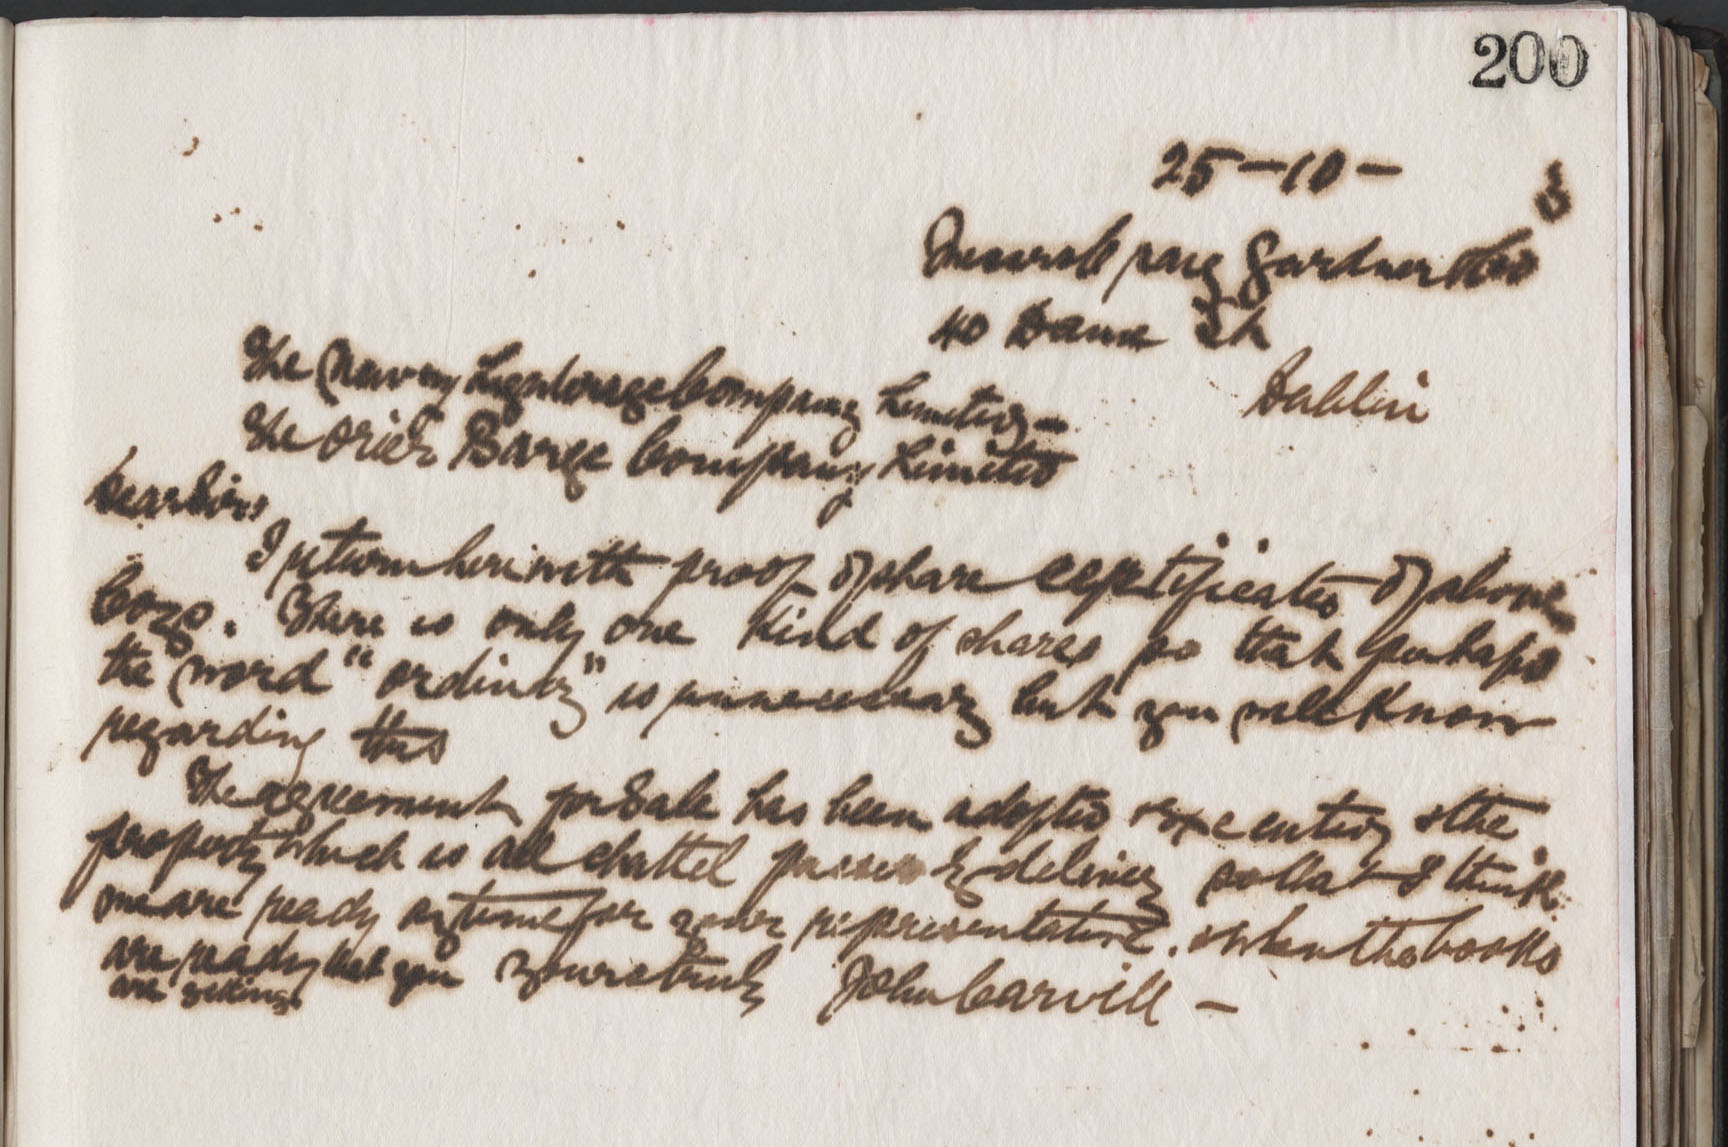 200
25-10-
Messrs Craig Gardner & Co
40 Dame St
Dublin
The Newry Lighterage Company Limited -
The Oriel Barge Company Limited
Dear Sirs
I return herewith proof of share certificates of above
Coys. There is only one kind of shares so that perhaps
the word "ordinary" is unnecessary but you will know
regarding this
The agreement for Sale has been adopted & executed & the
property which is all chattel passes by delivery so that I think
we are ready any time for your representative. when the books
are ready that you
are getting.
Yours truly John Carvill -